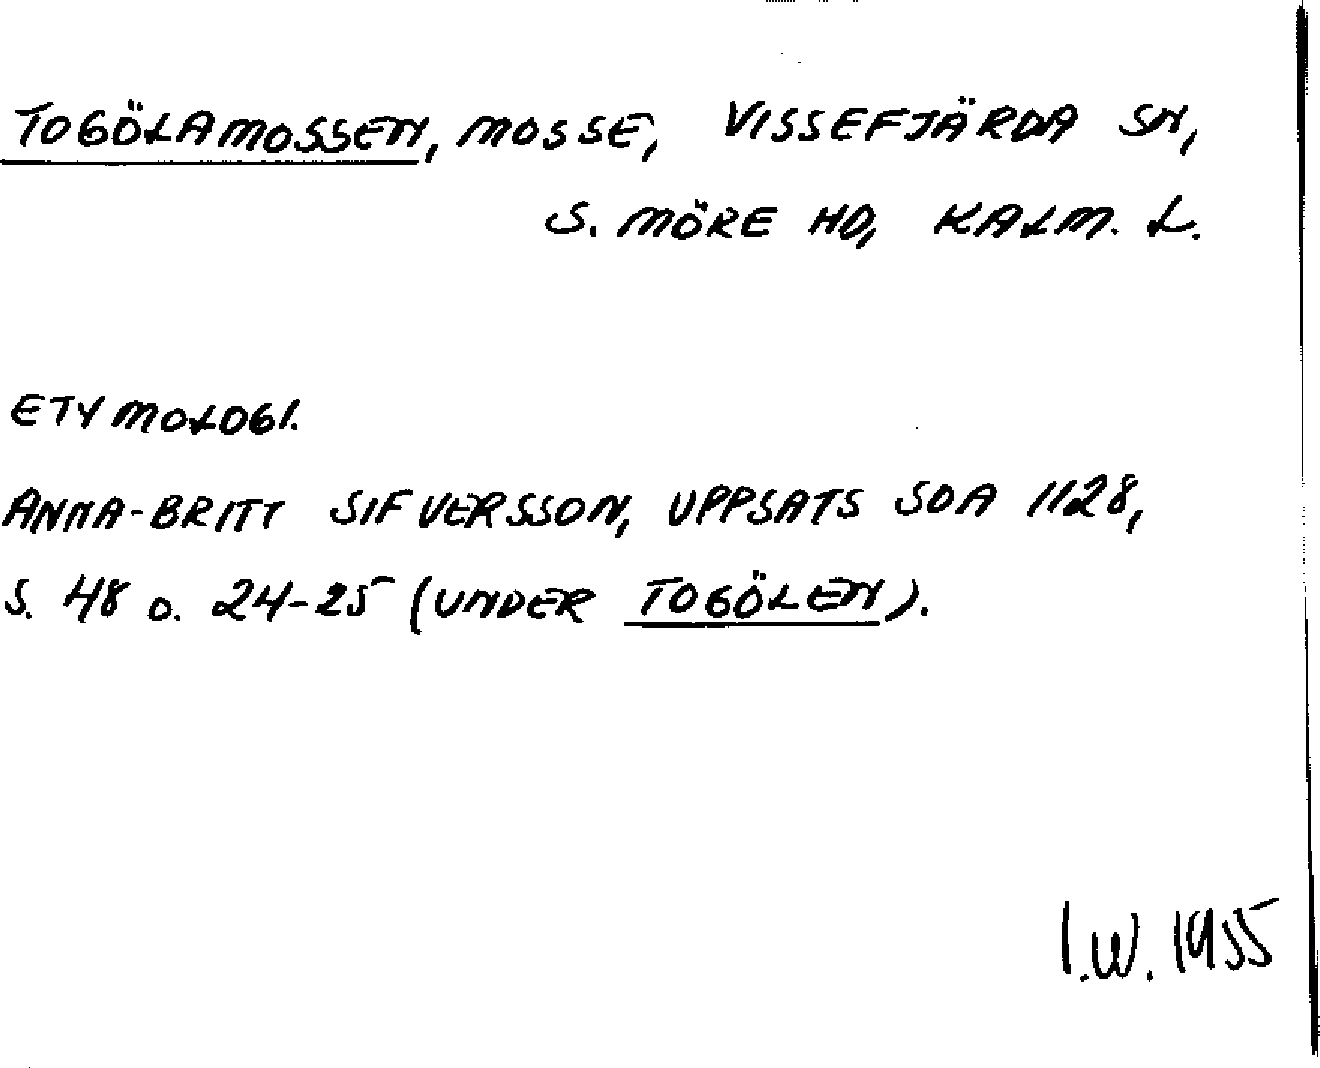 TOGÖLAMOSSEN, MOSSE, VISSEFJÄRDA SN,
S. MÖRE HD, KALM. L.
ETYMOLOGI.
ANNA-BRITT SIFVERSSON, UPPSATS SOA 1128,
S. 48 o. 24-25 (UNDER TOGÖLEN).
I.W. 1955